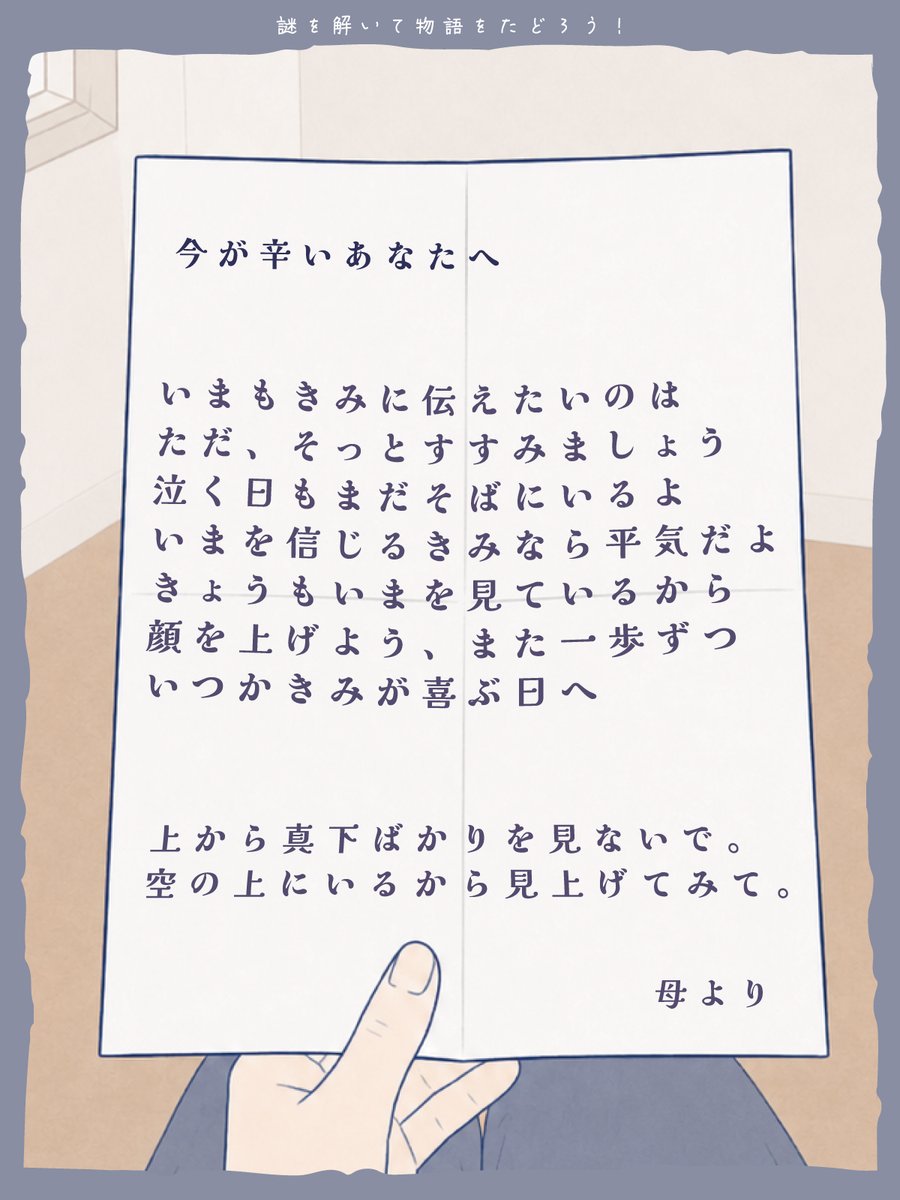 謎を解いて物語をたどろう！
今が辛いあなたへ
いまもきみに伝えたいのは
ただ、そっとすすみましょう
泣く日もまだそばにいるよ
いまを信じるきみなら平気だよ
きょうもいまを見ているから
顔を上げよう、また一歩ずつ
いつかきみが喜ぶ日へ
上から真下ばかりを見ないで。
空の上にいるから見上げてみて。
母より